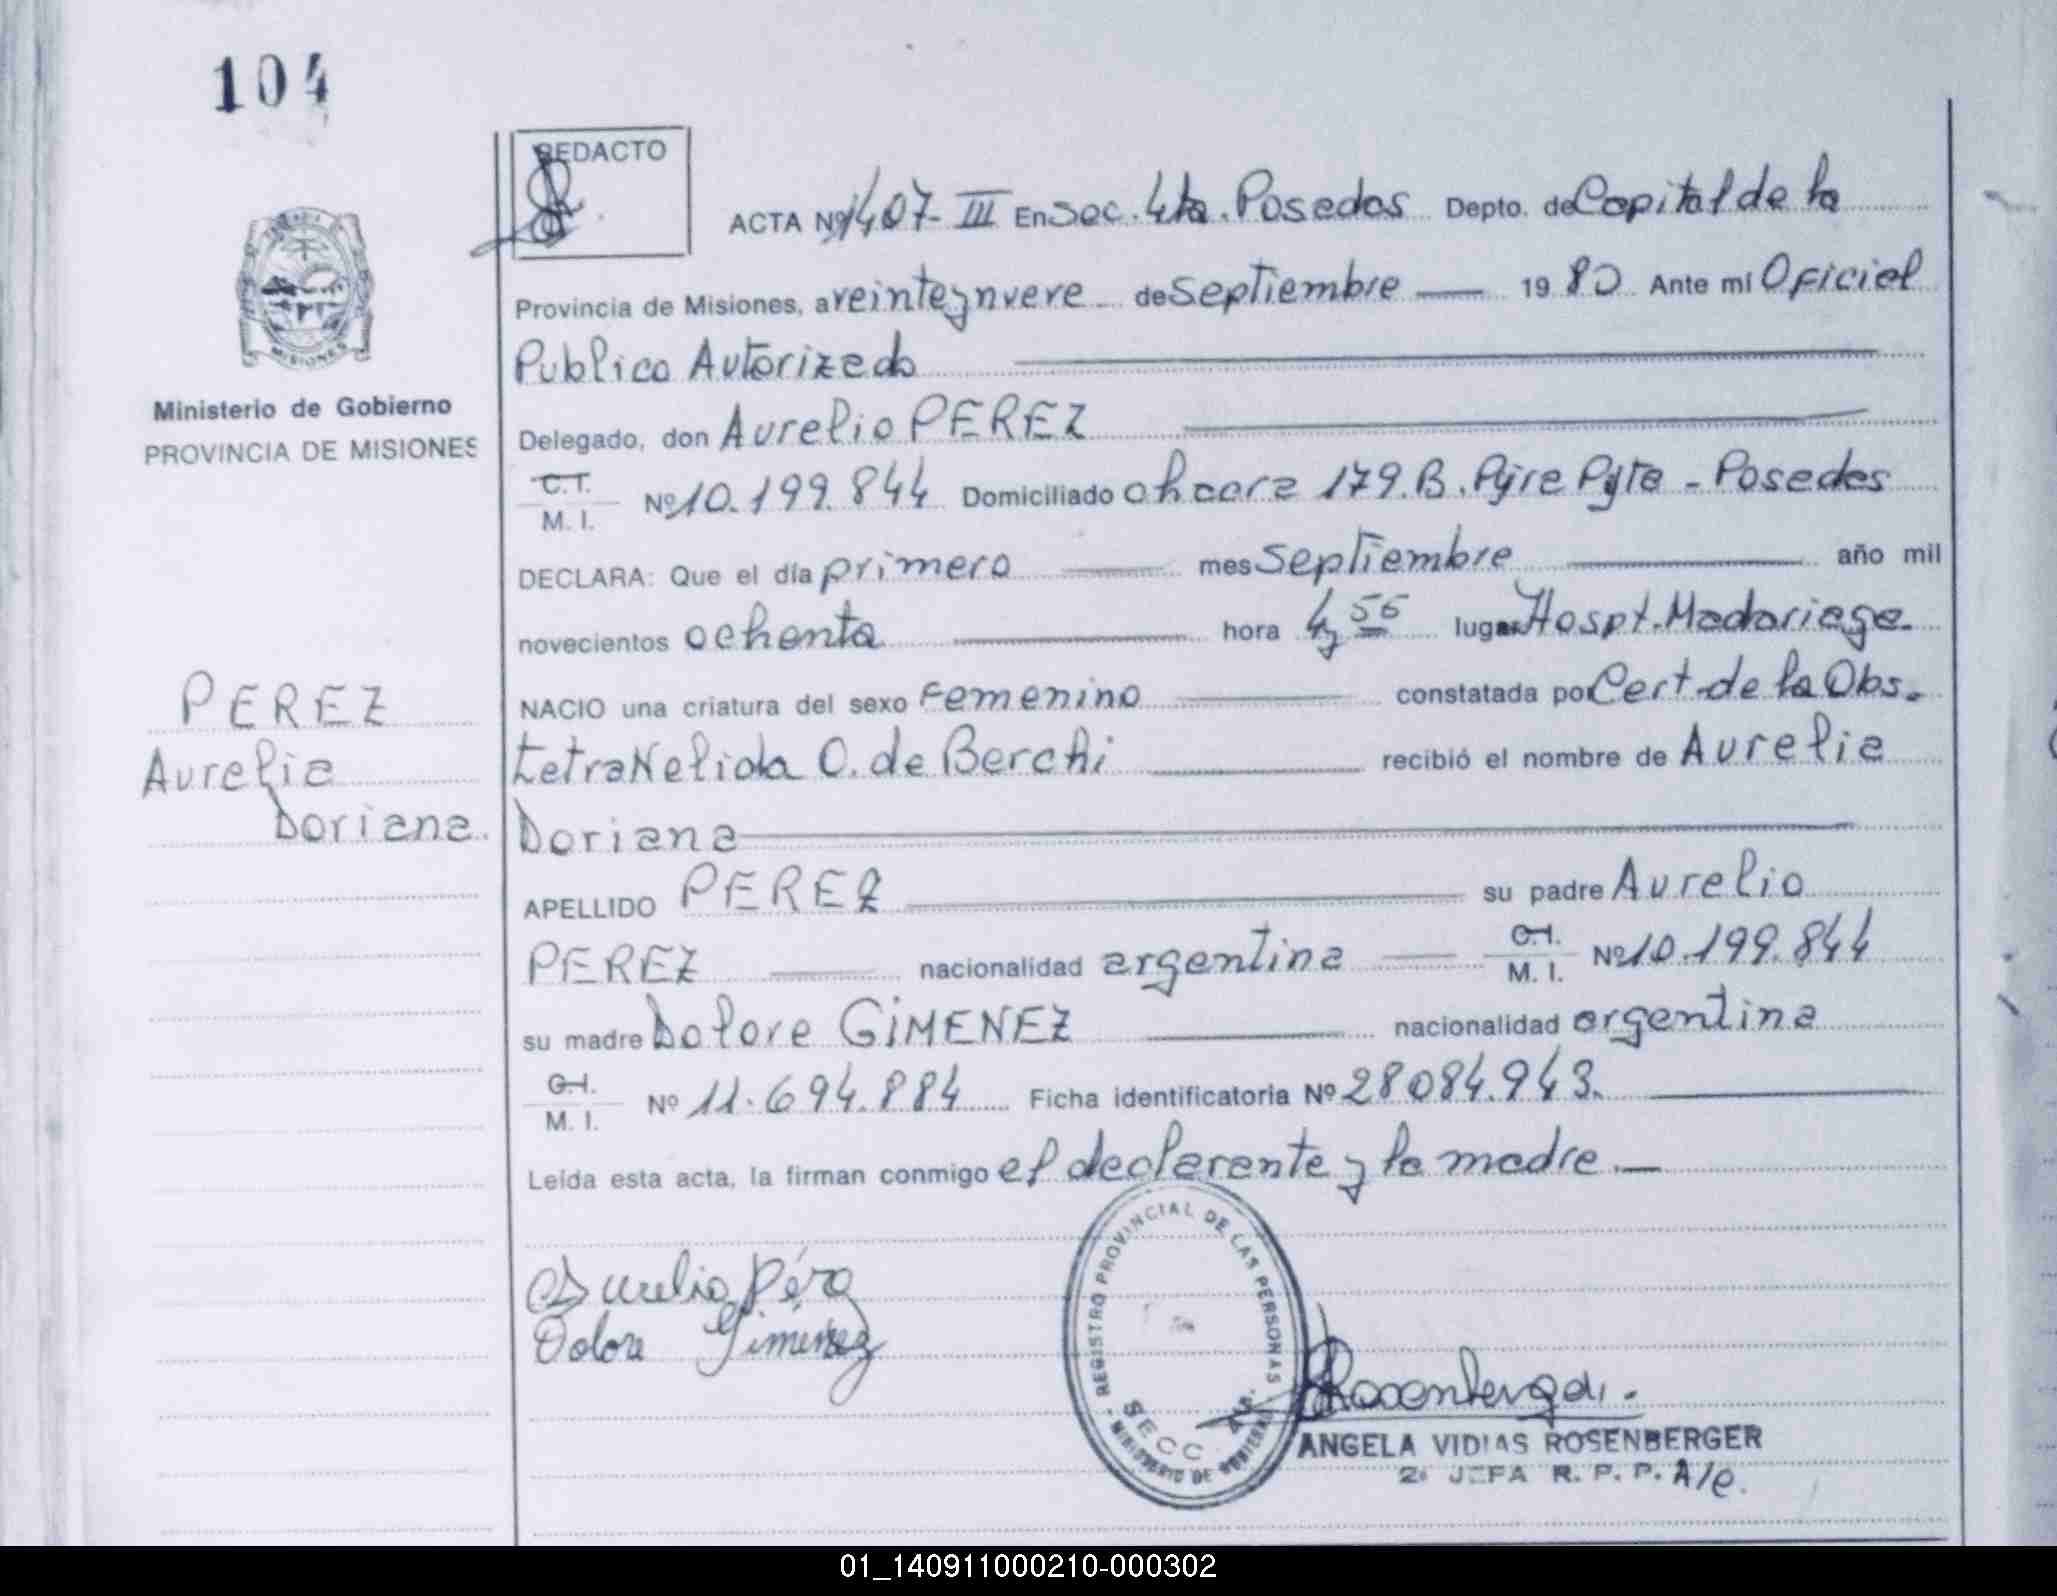 104
REDACTO
ACTA Nº 1407-III En Sec. 4ta. Posadas Depto. de Capital de la
Provincia de Misiones, a veinteynueve de Septiembre 1980 Ante mí Oficial
Publico Autorizado
Delegado, don Aurelio PEREZ
C.T.
M. I. Nº 10.199.844 Domiciliado chacra 179.B. Pyre Pyta - Posadas
DECLARA: Que el día primero mes Septiembre año mil
novecientos ochenta hora 4y55 lugar Hospt. Madariaga.
NACIO una criatura del sexo femenino constatada por Cert. de la Obs.
tetra Nelida O. de Berchi recibió el nombre de Aurelia
Doriana
APELLIDO PEREZ su padre Aurelio
PEREZ nacionalidad argentina C.I.
M. I. Nº 10.199.844
su madre Dolore GiMENEZ nacionalidad argentina
C.I.
M. I. Nº 11.694.884 Ficha identificatoria Nº 28084.943.
Leída esta acta, la firman conmigo el declarante y la madre.
Ministerio de Gobierno
PROVINCIA DE MISIONES
MISIONES
PEREZ
Aurelia
Doriana.
Aurelio Pérez
Dolore Gimenez
REGISTRO PROVINCIAL DE LAS PERSONAS
SECC. 4ta.
MINISTERIO DE GOBIERNO
ANGELA VIDIAS ROSENBERGER
2ª JEFA R. P. P. A/C.
01_140911000210-000302